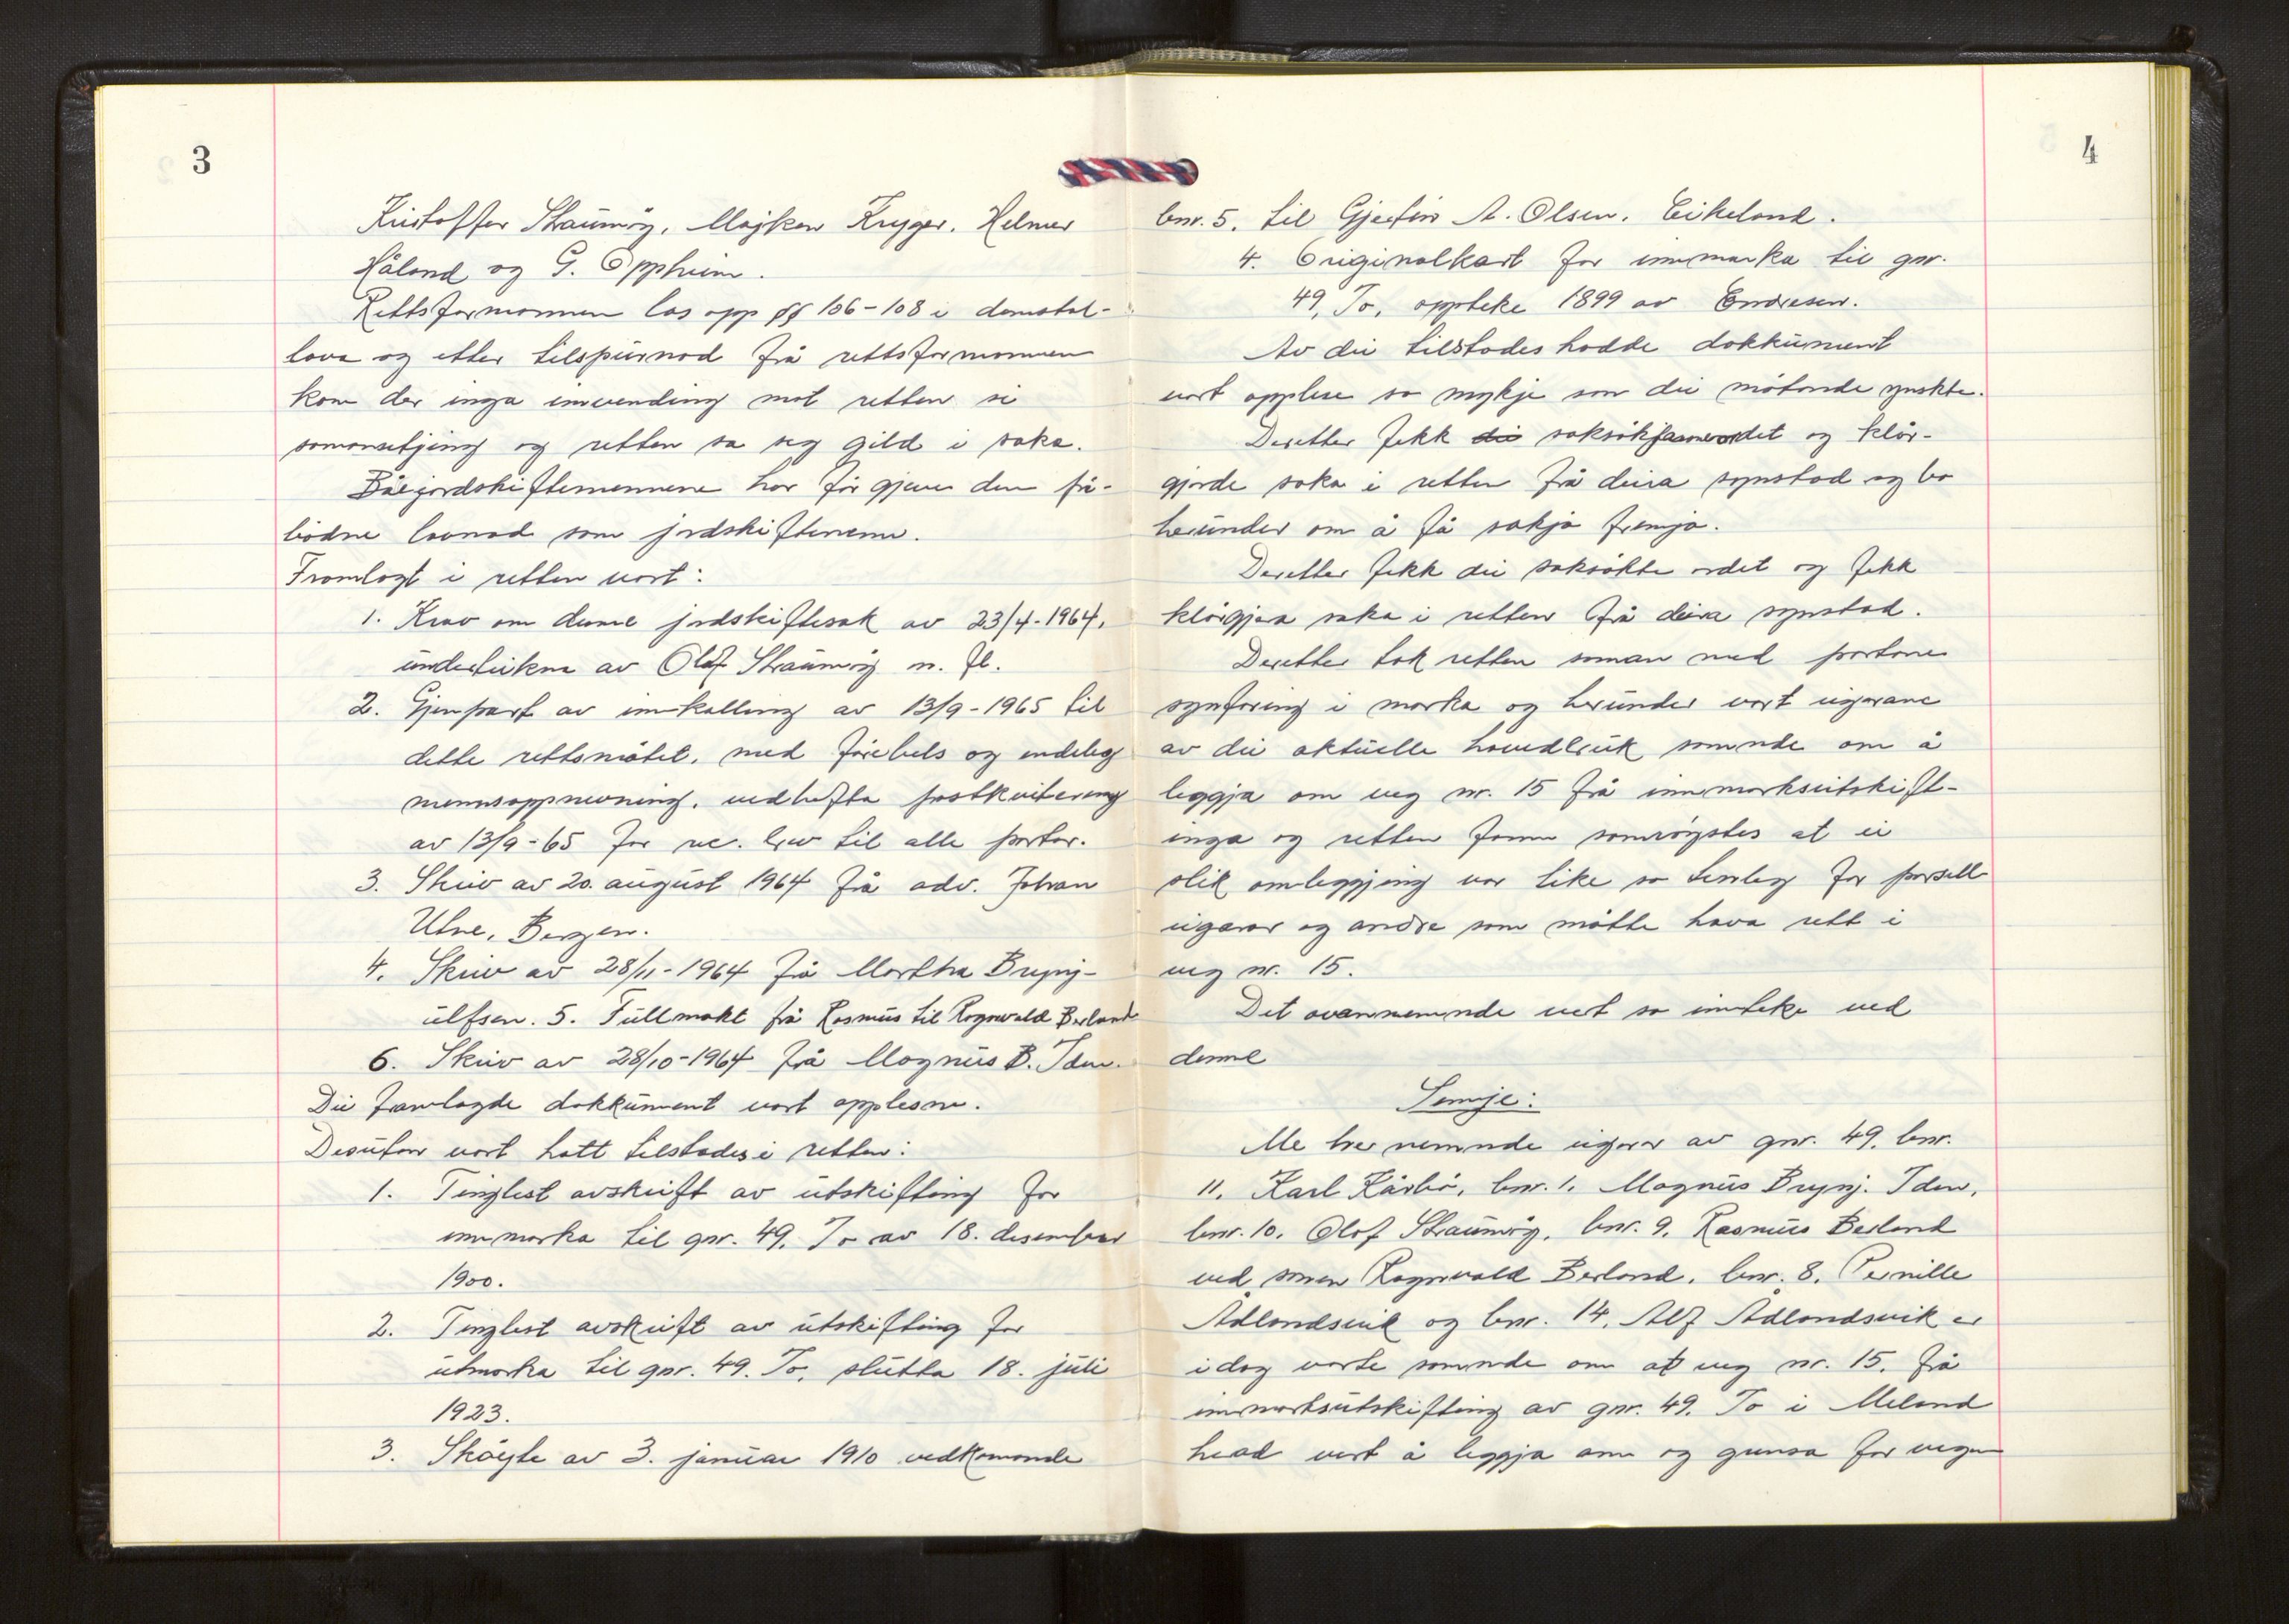 3
Kristoffer Straumøy, Majken Kryger, Helmer
Håland og G. Oppheim.
Rettsformannen las opp §§ 106-108 i domstol-
lova og etter tilspurnad frå rettsformannen
kom der inga innvending mot retten si
samansetjing og retten sa seg gild i saka.
Båe jordskiftemennene har før gjeve den på-
bodne lovnad som jordskiftemenn.
Framlagt i retten vart:
1. Krav om denne jordskiftesak av 23/4-1964,
underteikna av Olaf Straumøy m. fl.
2. Gjenpart av innkalling av 13/9-1965 til
dette rettsmøtet, med førebels og endeleg
mennsoppnevning, vedhefta postkvitering
av 13/9-65 for rec. brev til alle partar.
3. Skriv av 20. august 1964 frå adv. Johan
Utne, Bergen.
4. Skriv av 28/11-1964 frå Martha Brynj-
ulfsen. 5. Fullmakt frå Rasmus til Ragnvald Berland
6. Skriv av 28/10-1964 frå Magnus B. Iden.
Dei framlagde dokkument vart opplesne.
Desutan vart hatt tilstades i retten:
1. Tinglest avskrift av utskifting for
innmarka til gnr. 49, To av 18. desember
1900.
2. Tinglest avskrift av utskifting for
utmarka til gnr. 49. To, slutta 18. juli
1923.
3. Skøyte av 3. januar 1910 vedkomande
4
bnr. 5. til Gjertin A. Olsen, Eikeland.
4. Originalkart for innmarka til gnr.
49, To, oppteke 1899 av Endresen.
Av dei tilstades hadde dokkument
vart opplese so mykje som dei møtande ynskte.
Deretter fekk dei saksøkjarane ordet og klår-
gjorde saka i retten frå deira synstad og ba
herunder om å få sakja fremja.
Deretter fekk dei saksøkte ordet og fekk
klårgjera saka i retten frå deira synstad.
Deretter tok retten saman med partane
synfaring i marka og herunder vart eigarane
av dei aktuelle hovudbruk samnde om å
leggja om veg nr. 15 frå innmarksutskift-
inga og retten fann samrøystes at ei
slik omleggjing var like so tenleg for parsell-
eigarar og andre som måtte hava rett i
veg nr. 15.
Det ovannemnde vert so innteke ved
denne
Semje:
Me her nemnde eigarar av gnr. 49, bnr.
11, Karl Kårbø, bnr. 1, Magnus Brynj. Iden,
bnr. 10, Olaf Straumøy, bnr. 9, Rasmus Berland
ved sonen Ragnvald Berland, bnr. 8, Pernille
Ådlandsvik og bnr. 14, Alf Ådlandsvik er
i dag vorte samnde om at veg nr. 15, frå
innmarksutskifting av gnr. 49, To i Meland
herad vert å leggja om og grunna for vegen